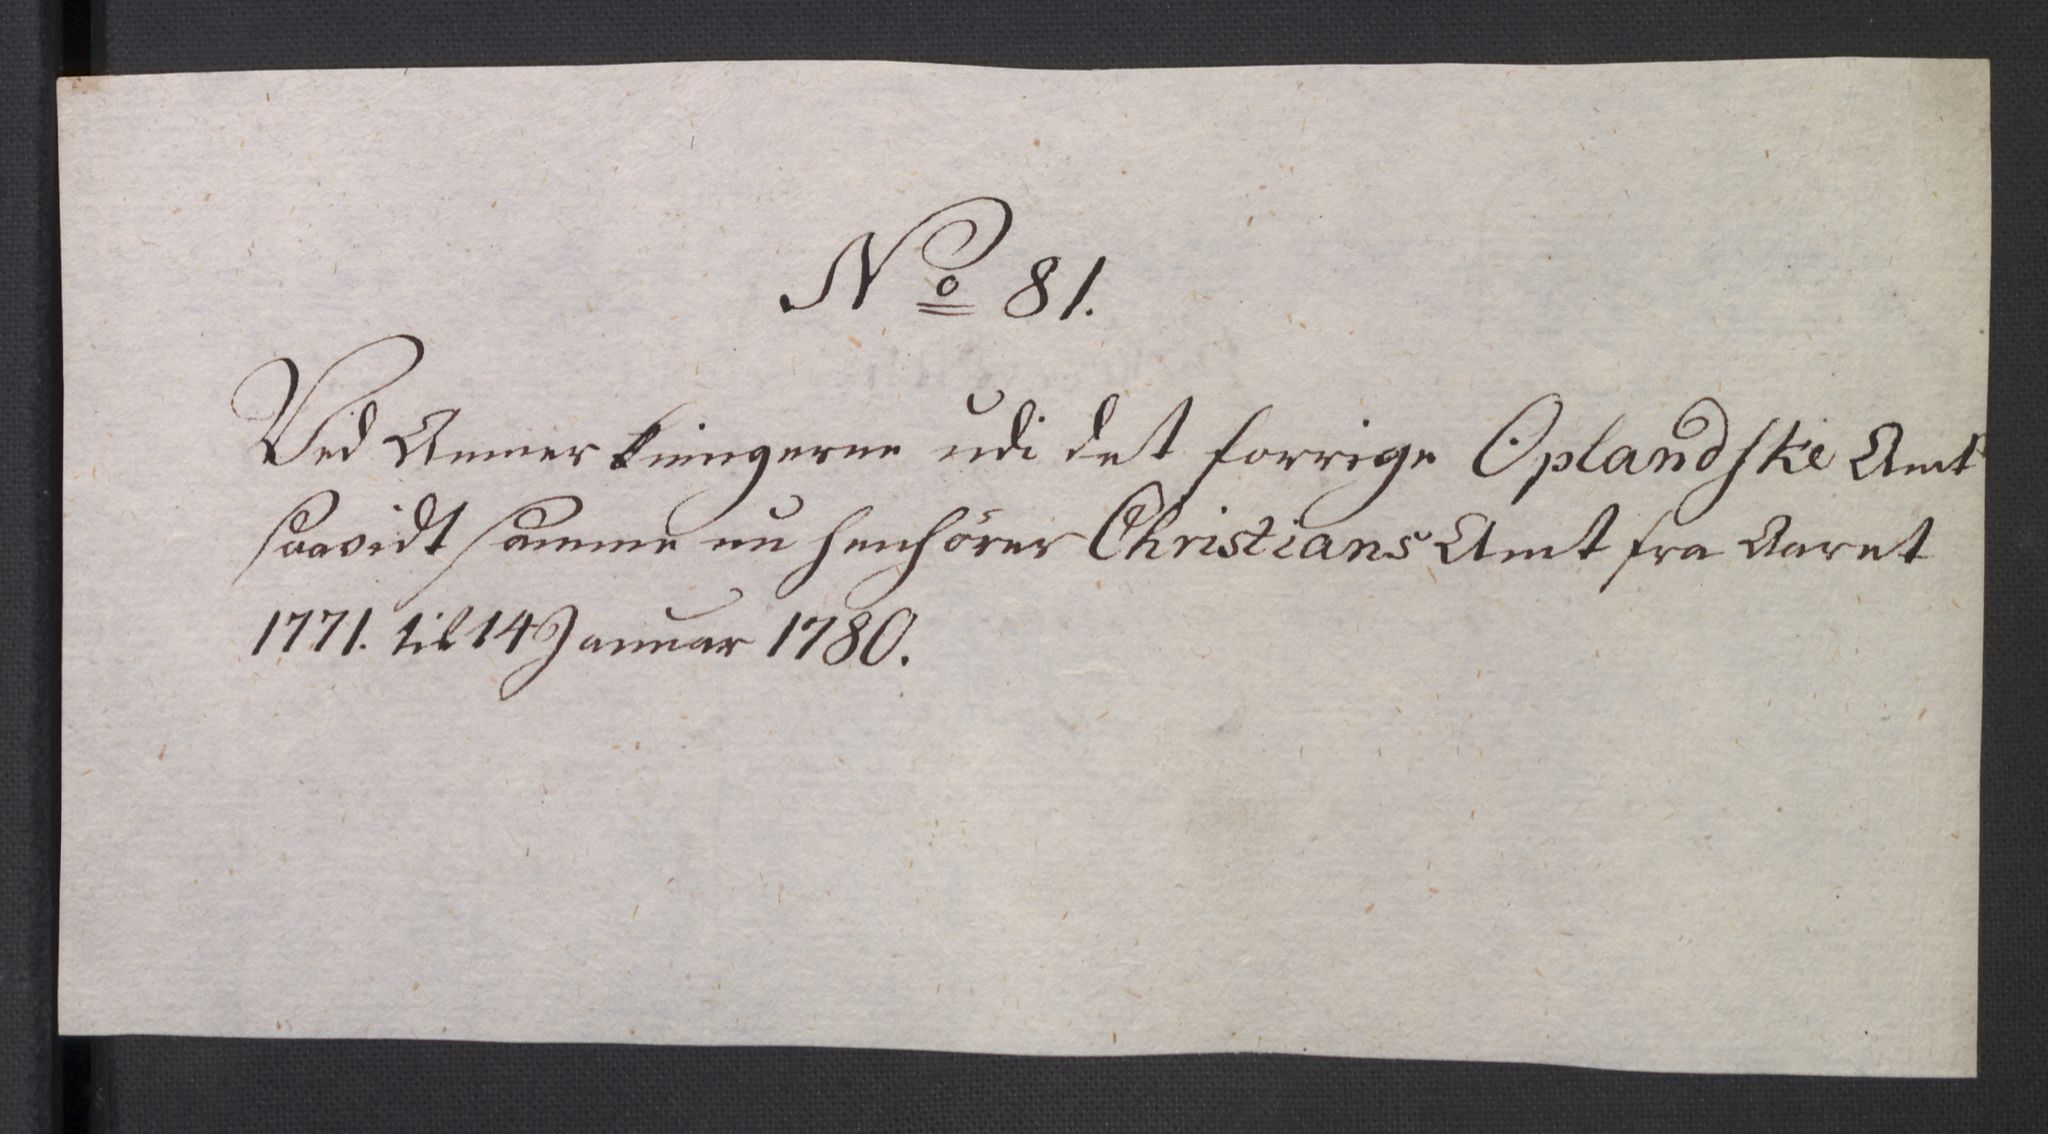 No 81.
Ved Anmerkningerne udi det forrige Oplandske Amt
saavidt samme nu henhörer Christians Amt fra Aaret
1771. til 14 Januar 1780.